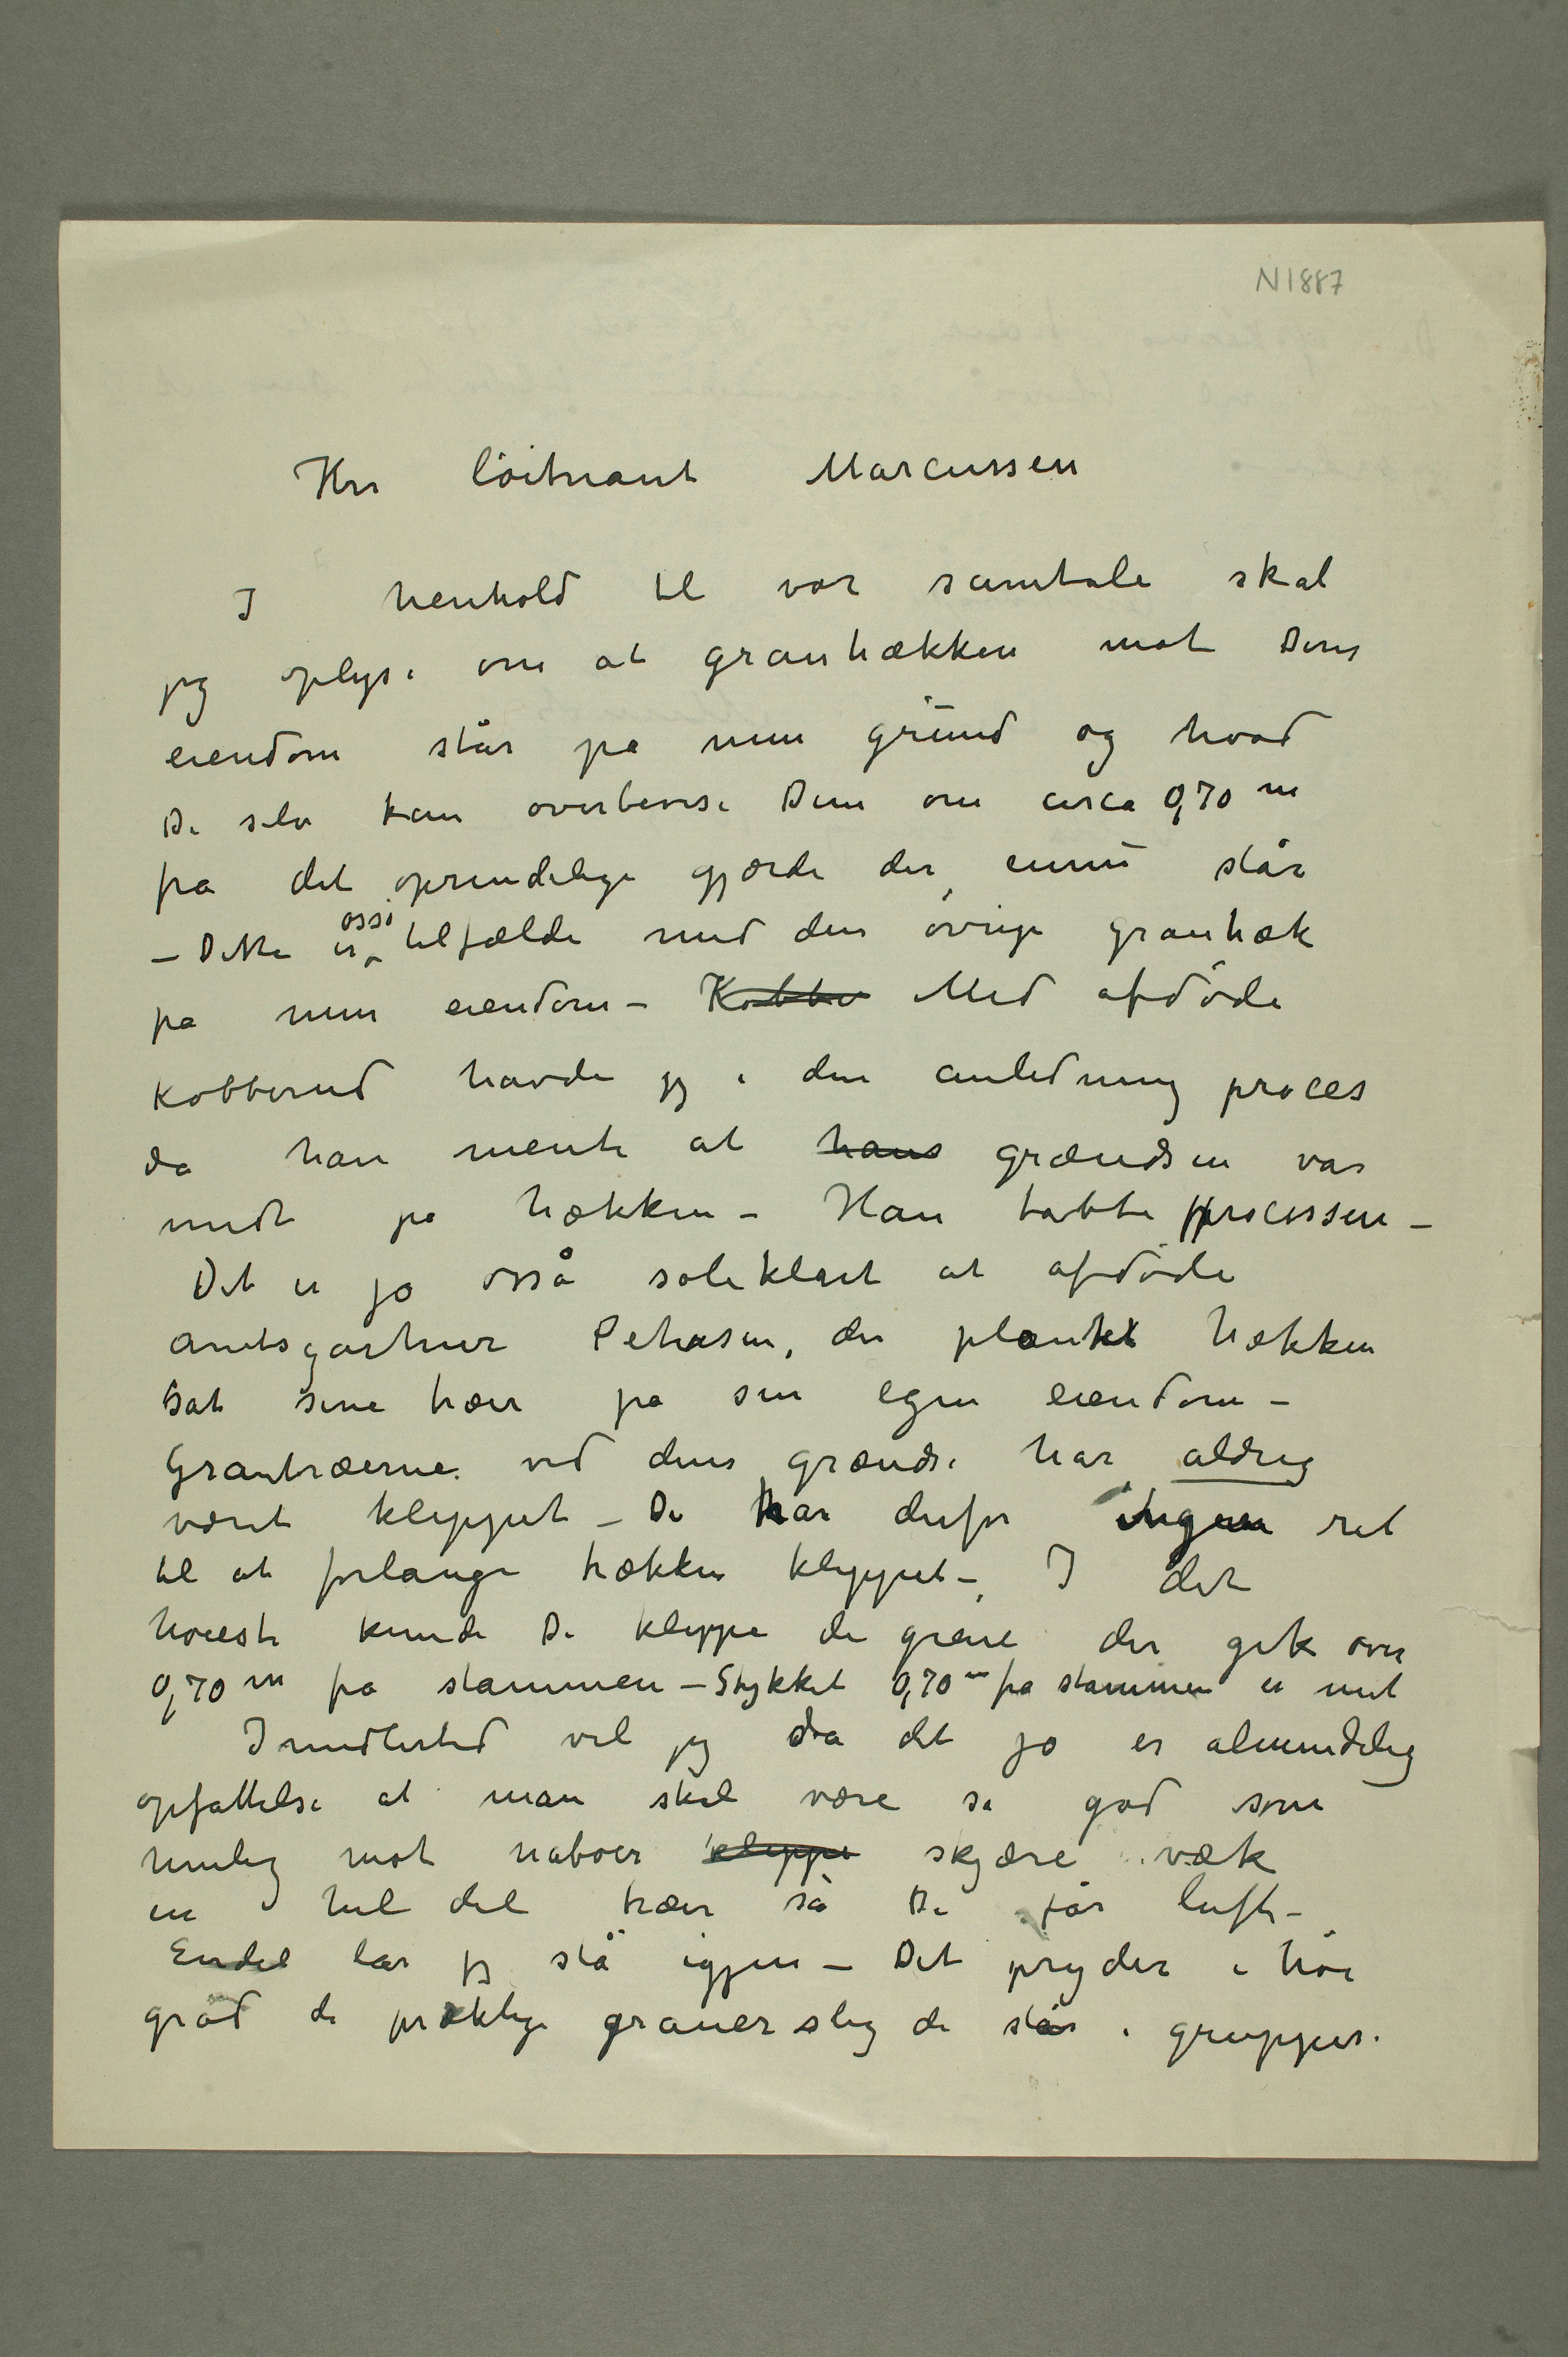 N1887
Hrr löitnant Marcussen
I henhold til vor samtale skal
jeg oplyse om at granhækken mot Deres
eiendom står på min grund og hvad
De selv kan overbevise Dem om circa 0,70 m
fra det oprindelige gjærde der ennu står
– Dette er også tilfælde med den øvrige granhæk
på min eiendom – Kobbe Med afdøde
Kobberud havde jeg i den anledning proces
da han mente at hans grændsen var
midt på hækken – Han tabte processen –
Det er jo osså soleklart at afdøde
amtsgartner Petersen, der plantet hækken
sat sine trær på sin egen eiendom –
Grantræerne ved dens grændse har aldrig
været klippet – De har derfor ingen ret
til at forlange hækken klippet – I det
høieste kunde De klippe de grene der gik over
0,70 m fra stammen – Stykket 0,70 m fra stammen er mit
Imidlertid vil jeg da det jo er almindelig
opfattelse at man skal være så god som
mulig mot naboer klippe skjære væk
en hel del trær så De får luft –
Endel lar jeg stå igjen – Det pryder i høi
grad de præktige graner slig de står i grupper.